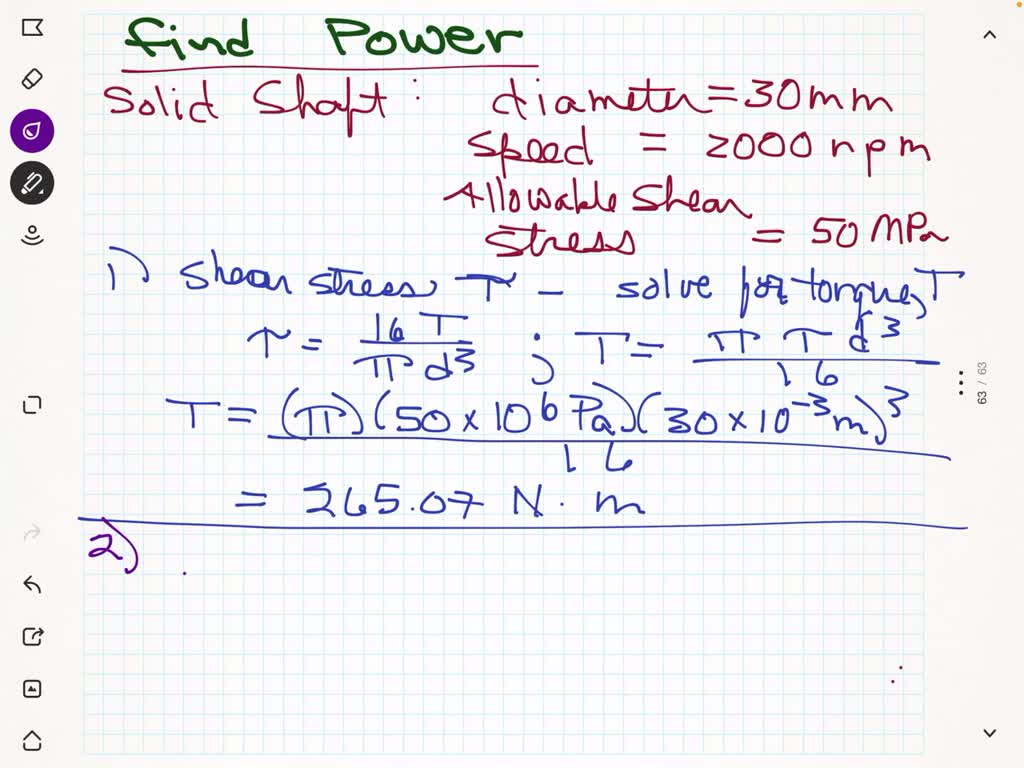 Find Power
Solid Shaft : diameter = 30mm
Speed = 2000 rpm
Allowable Shear
Stress = 50 MPa
1) Shear stress τ – solve for torque, T
τ = 16 T / π d³ ; T = π τ d³ / 16
T = (π)(50 × 10⁶ Pa)(30 × 10⁻³ m)³ / 16
= 265.07 N · m
2)
63 / 63